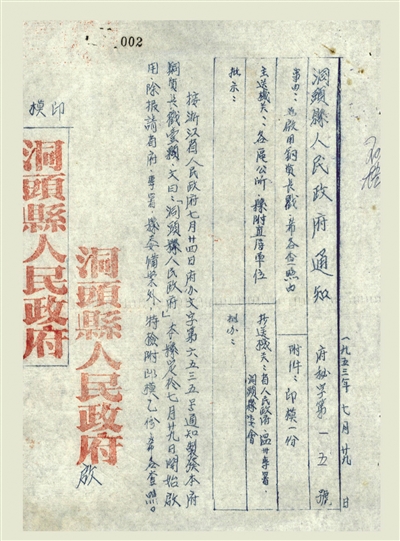 002
一九五三年七月廿九日
洞頭縣人民政府通知 府秘字第一五號
事由:為啟用銅質長戳希各查照由
附件:印模一份
主送機关:各區公所 縣附直屬单位
抄送機关:省人民政府.溫州專署.洞頭縣委會
批示:
拟办:
接浙江省人民政府七月廿四日府办文字第六五三五号通知製發本府
銅質長戳壹顆,文曰:「洞頭縣人民政府」本縣定於七月廿九日開始啟
用,除报請省府、專署、縣委備案外,特檢附此模乙份,希各查照。
洞頭縣人民政府 啟
印模
洞頭縣人民政府